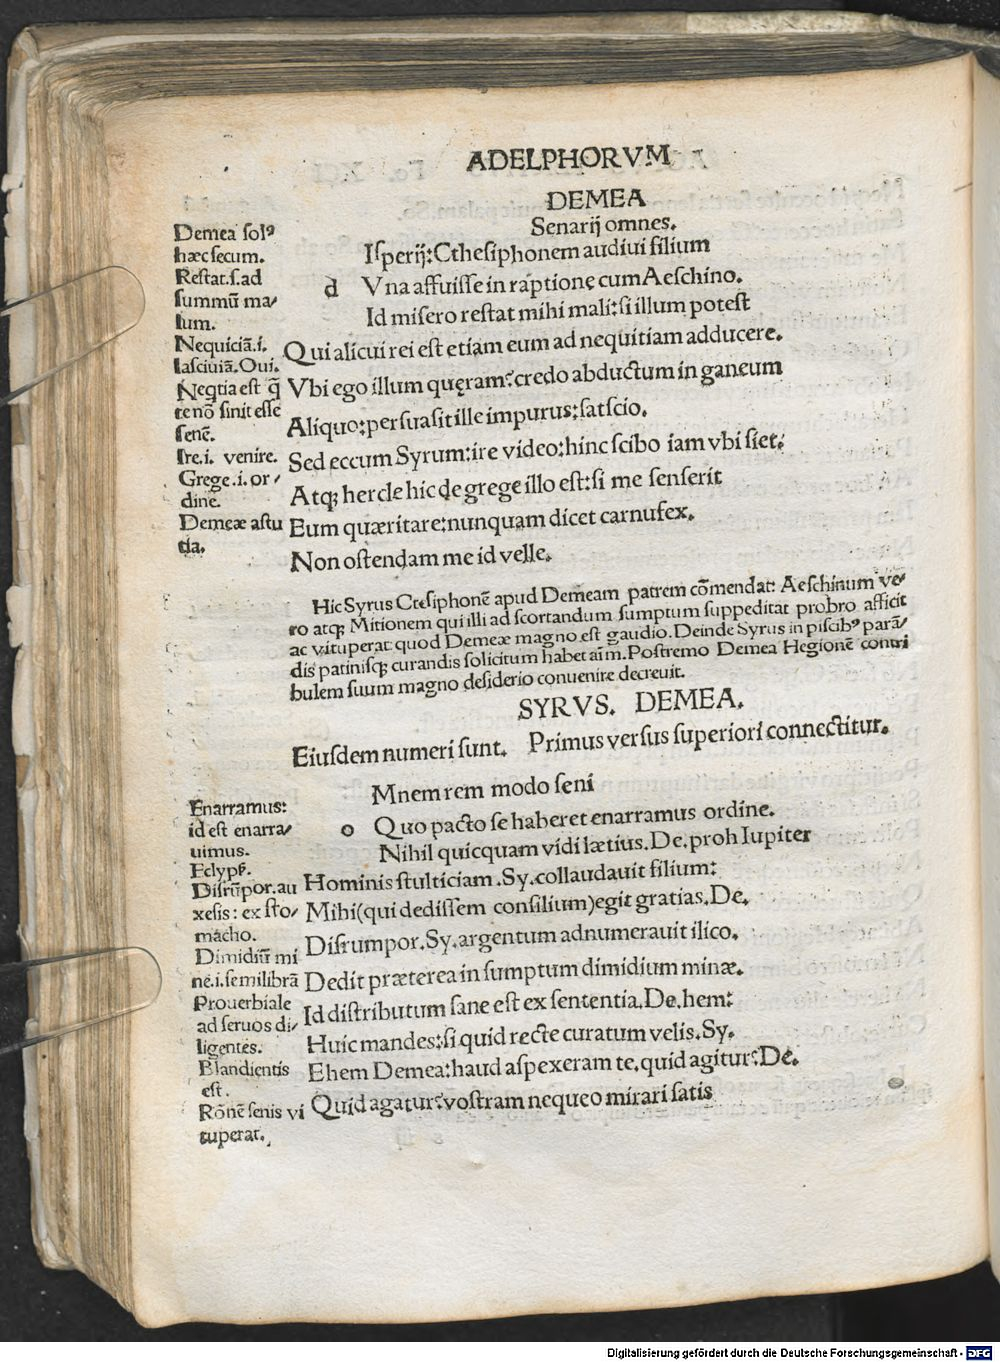 ADELPHORVM
DEMEA
Senarij omnes.
Demea solꝰ
hæc secum.
Restat.s.ad
summū ma/
lum.
Nequiciā.i.
lasciuiā.Oui.
Neqtia est q̄
te nō sinit esse
senē.
Ire.i. venire.
Grege.i.or/
dine.
Demeæ astu
tia.
d
Isperij:Cthesiphonem audiui filium
Vna affuisse in raptione cum Aeschino.
Id misero restat mihi mali:si illum potest
Qui alicui rei est etiam eum ad nequitiam adducere.
Vbi ego illum quęram?credo abductum in ganeum
Aliquo:persuasit ille impurus:sat scio.
Sed eccum Syrum:ire video:hinc scibo iam vbi siet:
Atqꝫ hercle hic de grege illo est:si me senserit
Eum quæritare:nunquam dicet carnufex.
Non ostendam me id velle.
Hic Syrus Ctesiphonē apud Demeam patrem cōmendat: Aeschinum ve/
ro atqꝫ Mitionem qui illi ad scortandum sumptum suppeditat probro afficit
ac vituperat quod Demeæ magno est gaudio. Deinde Syrus in piscibꝰ parā/
dis patinisqꝫ curandis solicitum habet aīm. Postremo Demea Hegionē contri
bulem suum magno desiderio conuenire decreuit.
SYRVS. DEMEA.
Eiusdem numeri sunt. Primus versus superiori connectitur.
Enarramus:
id est enarra/
uimus.
Eclyps.
Disrūpor.au
xesis: ex sto/
macho.
Dimidiū mi
nę.i.semilibrā
Prouerbiale
ad seruos di/
ligentes.
Blandientis
est.
Rōnē senis vi
tuperat.
o
Mnem rem modo seni
Quo pacto se haberet enarramus ordine.
Nihil quicquam vidi lætius.De.proh Iupiter
Hominis stulticiam.Sy.collaudauit filium:
Mihi(qui dedissem consilium)egit gratias.De.
Disrumpor.Sy.argentum adnumerauit ilico.
Dedit præterea in sumptum dimidium minæ.
Id distributum sane est ex sententia.De.hem:
Huic mandes:si quid recte curatum velis.Sy.
Ehem Demea:haud aspexeram te.quid agitur?De.
Quid agatur?vostram nequeo mirari satis
Digitalisierung gefördert durch die Deutsche Forschungsgemeinschaft - DFG